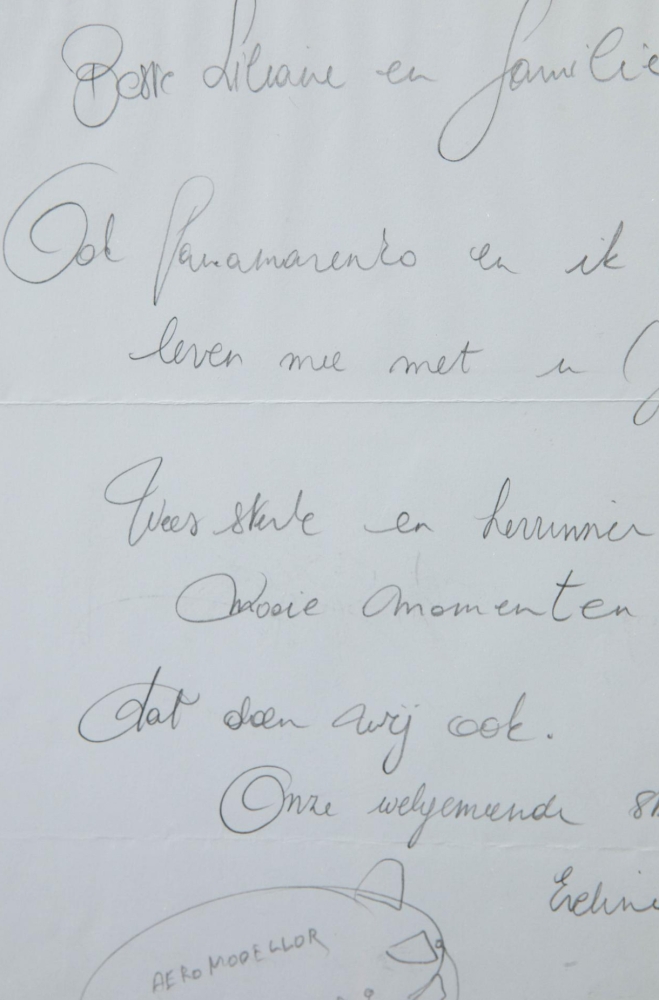 Beste Liliane en familie
Ook Panamarenko en ik
leven mee met u
Wees sterk en herrinner
Mooie momenten
dat doen wij ook.
Onze welgemeende
Eveline
AEROMODELLOR